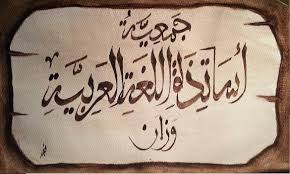 جمعية
أساتذة اللغة العربية
وزان